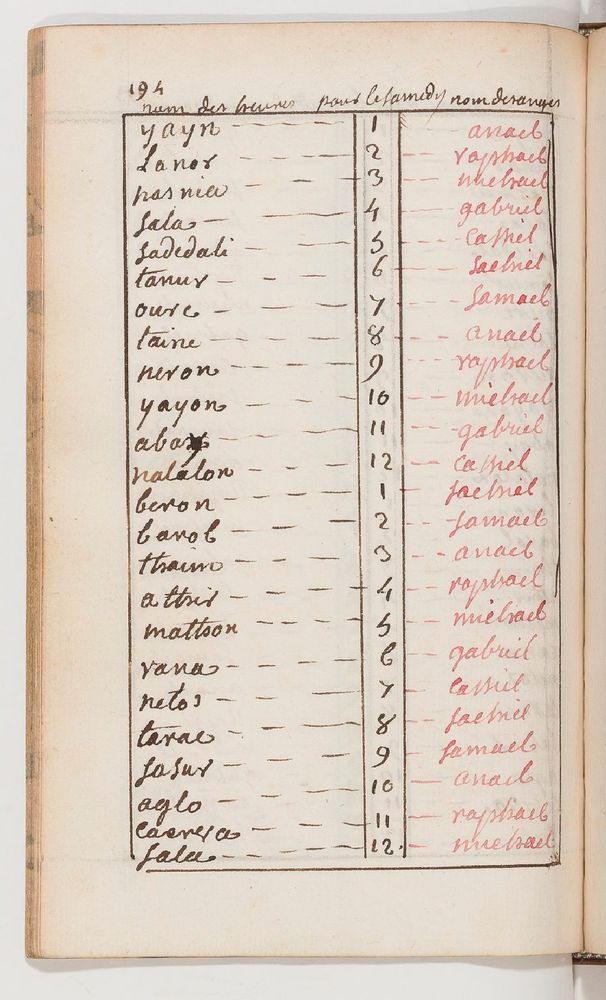 194
nom des heures pour le samedy nom des anges
yayn 1 anael
Lanor 2 raphael
nasnia 3 michael
sala 4 gabriel
sadedali 5 cassiel
tanur 6 sachiel
oure 7 samael
taine 8 anael
neron 9 raphael
yayon 10 michael
abay 11 gabriel
natalon 12 cassiel
beron 1 sachiel
barol 2 samael
thaim 3 anael
athir 4 raphael
mathon 5 michael
rana 6 gabriel
netos 7 cassiel
tarac 8 sachiel
sasur 9 samael
aglo 10 anael
caerra 11 raphael
sala 12. michael